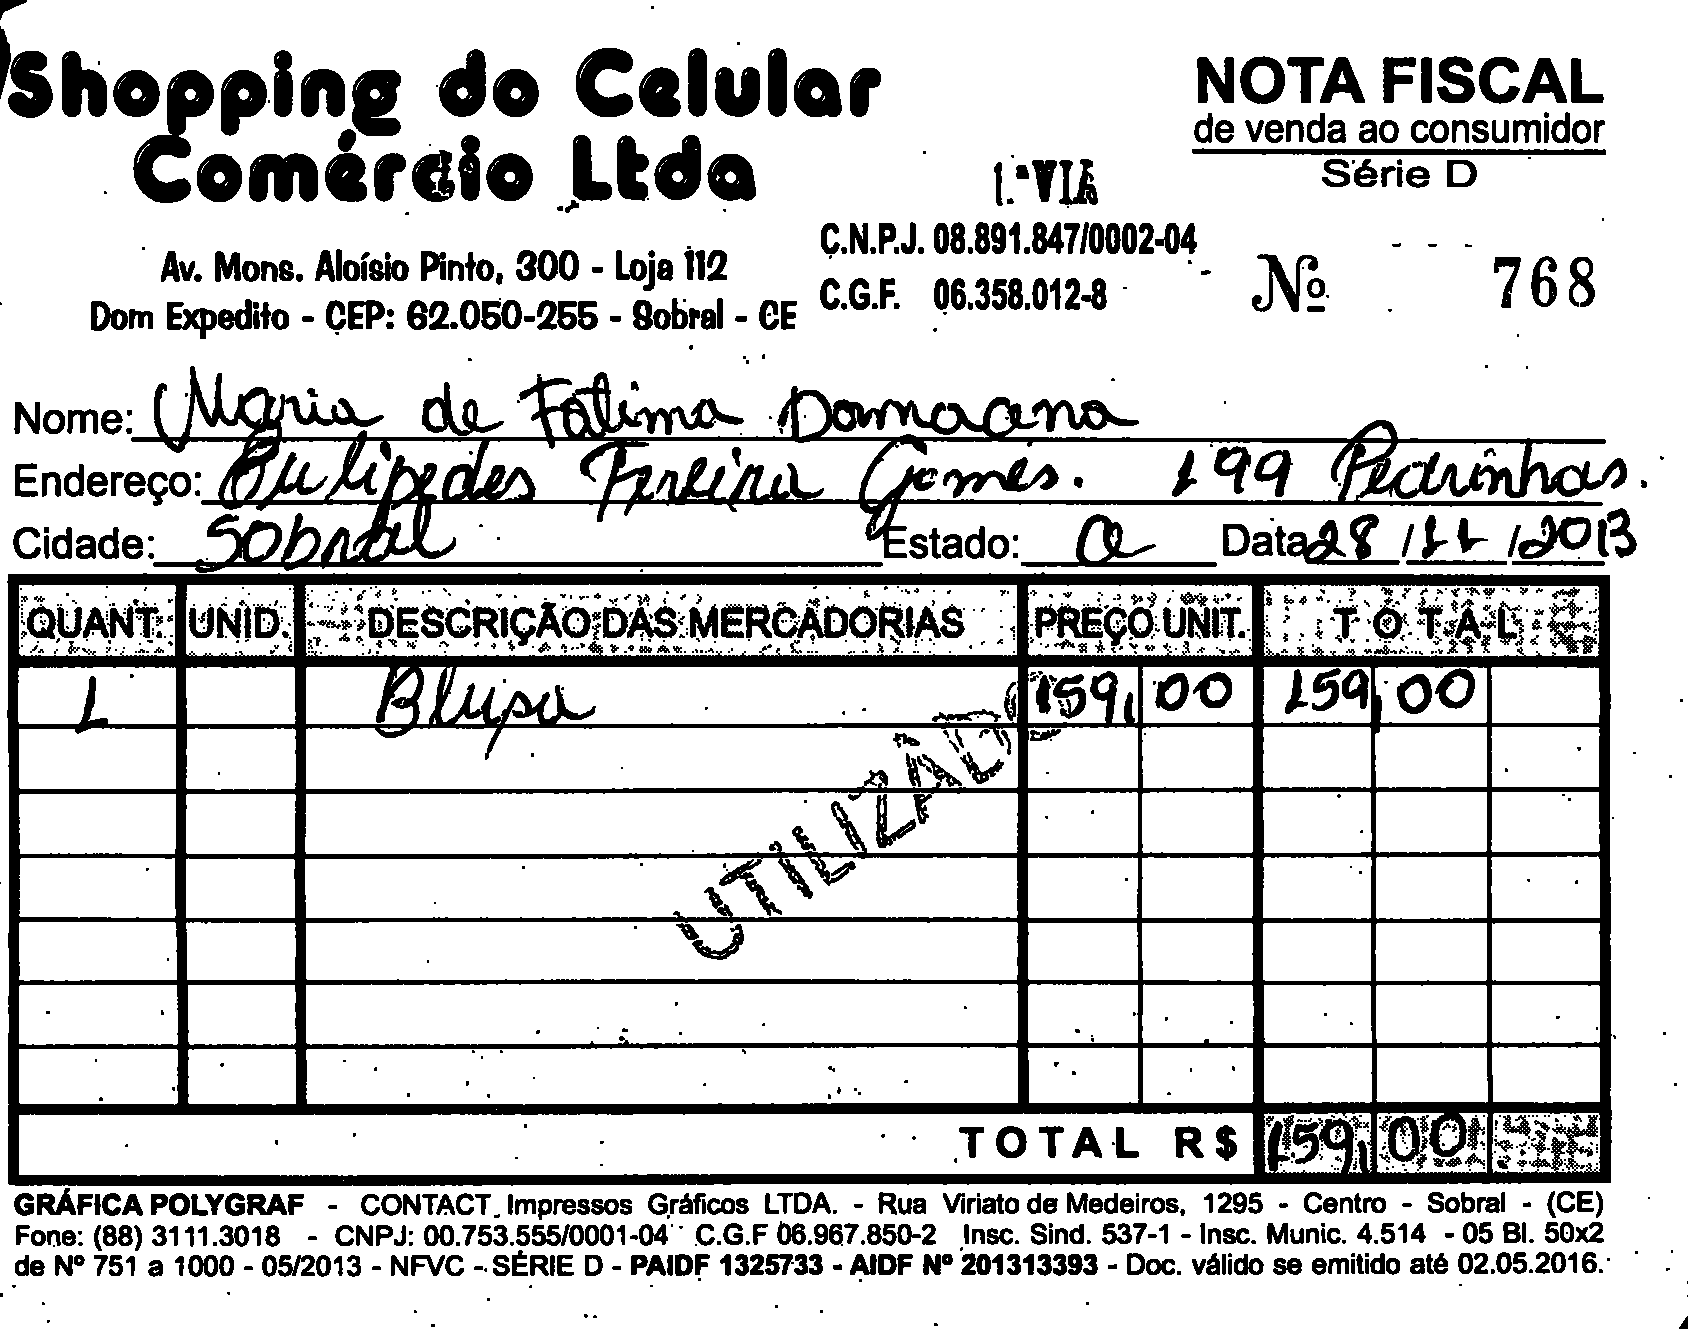 Shopping do Celular
Comércio Ltda
Av. Mons. Aloísio Pinto, 300 - Loja 112
Dom Expedito - CEP: 62.050-255 - Sobral - CE
1.ª VIA
C.N.P.J. 08.891.847/0002-04
C.G.F. 06.358.012-8
NOTA FISCAL
de venda ao consumidor
Série D
Nº 768
Nome: Maria de Fatima Damacena
Endereço: Eulipedes Ferreira Gomes. 199 Pedrinhas.
Cidade: Sobral Estado: Ce Data 28/11/2013
QUANT. UNID. DESCRIÇÃO DAS MERCADORIAS PREÇO UNIT. TOTAL
1 Blusa 159,00 159,00
UTILIZADO
TOTAL R$ 159,00
GRÁFICA POLYGRAF - CONTACT Impressos Gráficos LTDA. - Rua Viriato de Medeiros, 1295 - Centro - Sobral - (CE)
Fone: (88) 3111.3018 - CNPJ: 00.753.555/0001-04 C.G.F 06.967.850-2 Insc. Sind. 537-1 - Insc. Munic. 4.514 - 05 Bl. 50x2
de Nº 751 a 1000 - 05/2013 - NFVC - SÉRIE D - PAIDF 1325733 - AIDF Nº 201313393 - Doc. válido se emitido até 02.05.2016.